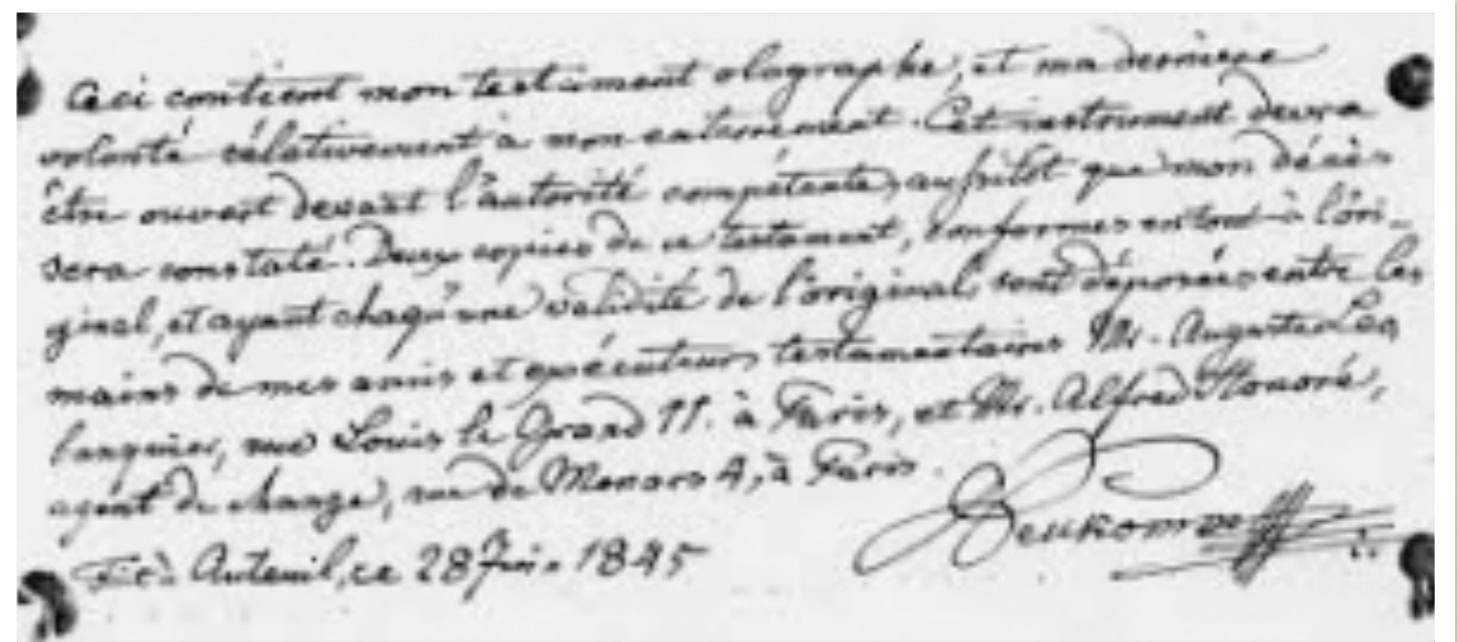 Ceci contient mon testament olographe, et ma dernière
volonté rélativement à mon enterrement. Cet instrument devra
être ouvert devant l'autorité compétente, aussitôt que mon décès
sera constaté. Deux copies de ce testament, conformes en tout à l'ori-
ginal, et ayant chaqu'une validité de l'original, sont déposées entre les
mains de mes amis et exécuteurs testamentaires Mr. Auguste Leo,
banquier, rue Louis le Grand 11. à Paris, et Mr. Alfred Honoré,
agent de change, rue de Menars 4, à Paris.
Ft à Auteuil, ce 28 Juin 1845
Neukomm